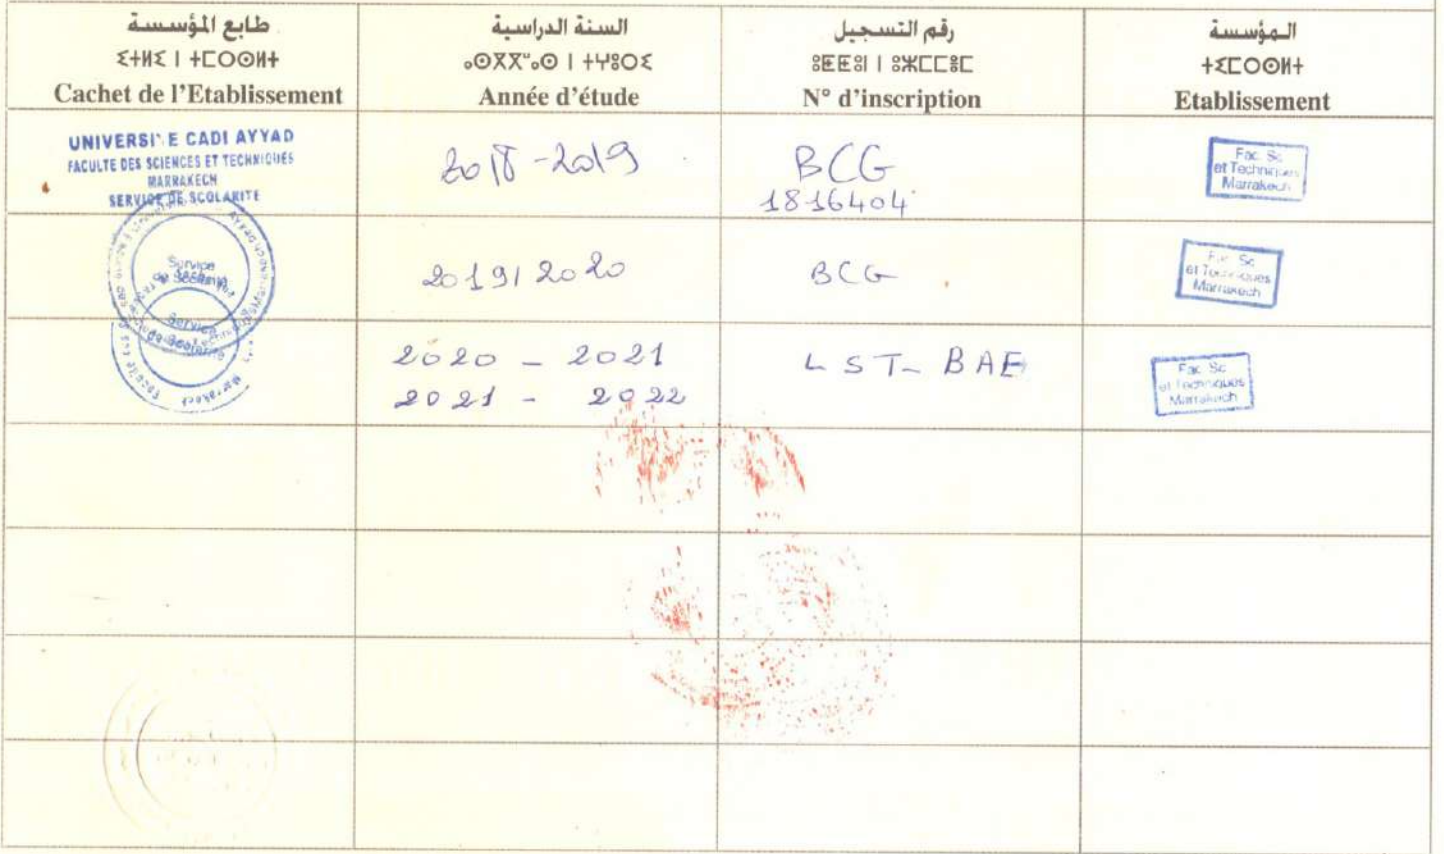 طابع المؤسسة
ⵉⵜⵍⵉ ⵏ ⵜⵎⵙⵙⵍⵜ
Cachet de l'Etablissement
السنة الدراسية
ⴰⵙⴳⴳⵯⴰⵙ ⵏ ⵜⵖⵓⵔⵉ
Année d'étude
رقم التسجيل
ⵓⵟⵟⵓⵏ ⵏ ⵓⵣⵎⵎⵓⵎ
N° d'inscription
المؤسسة
ⵜⵉⵎⵙⵙⵍⵜ
Etablissement
UNIVERSITE CADI AYYAD
FACULTE DES SCIENCES ET TECHNIQUES
MARRAKECH
SERVICE DE SCOLARITE
2018-2019
BCG
1816404
Fac. Sc
et Techniques
Marrakech
Service
de Scolarité
2019/2020
BCG
Fac. Sc
et Techniques
Marrakech
Service
de Scolarité
Marrakech
2020 - 2021
2021 - 2022
LST- BAE
Fac. Sc
et Techniques
Marrakech